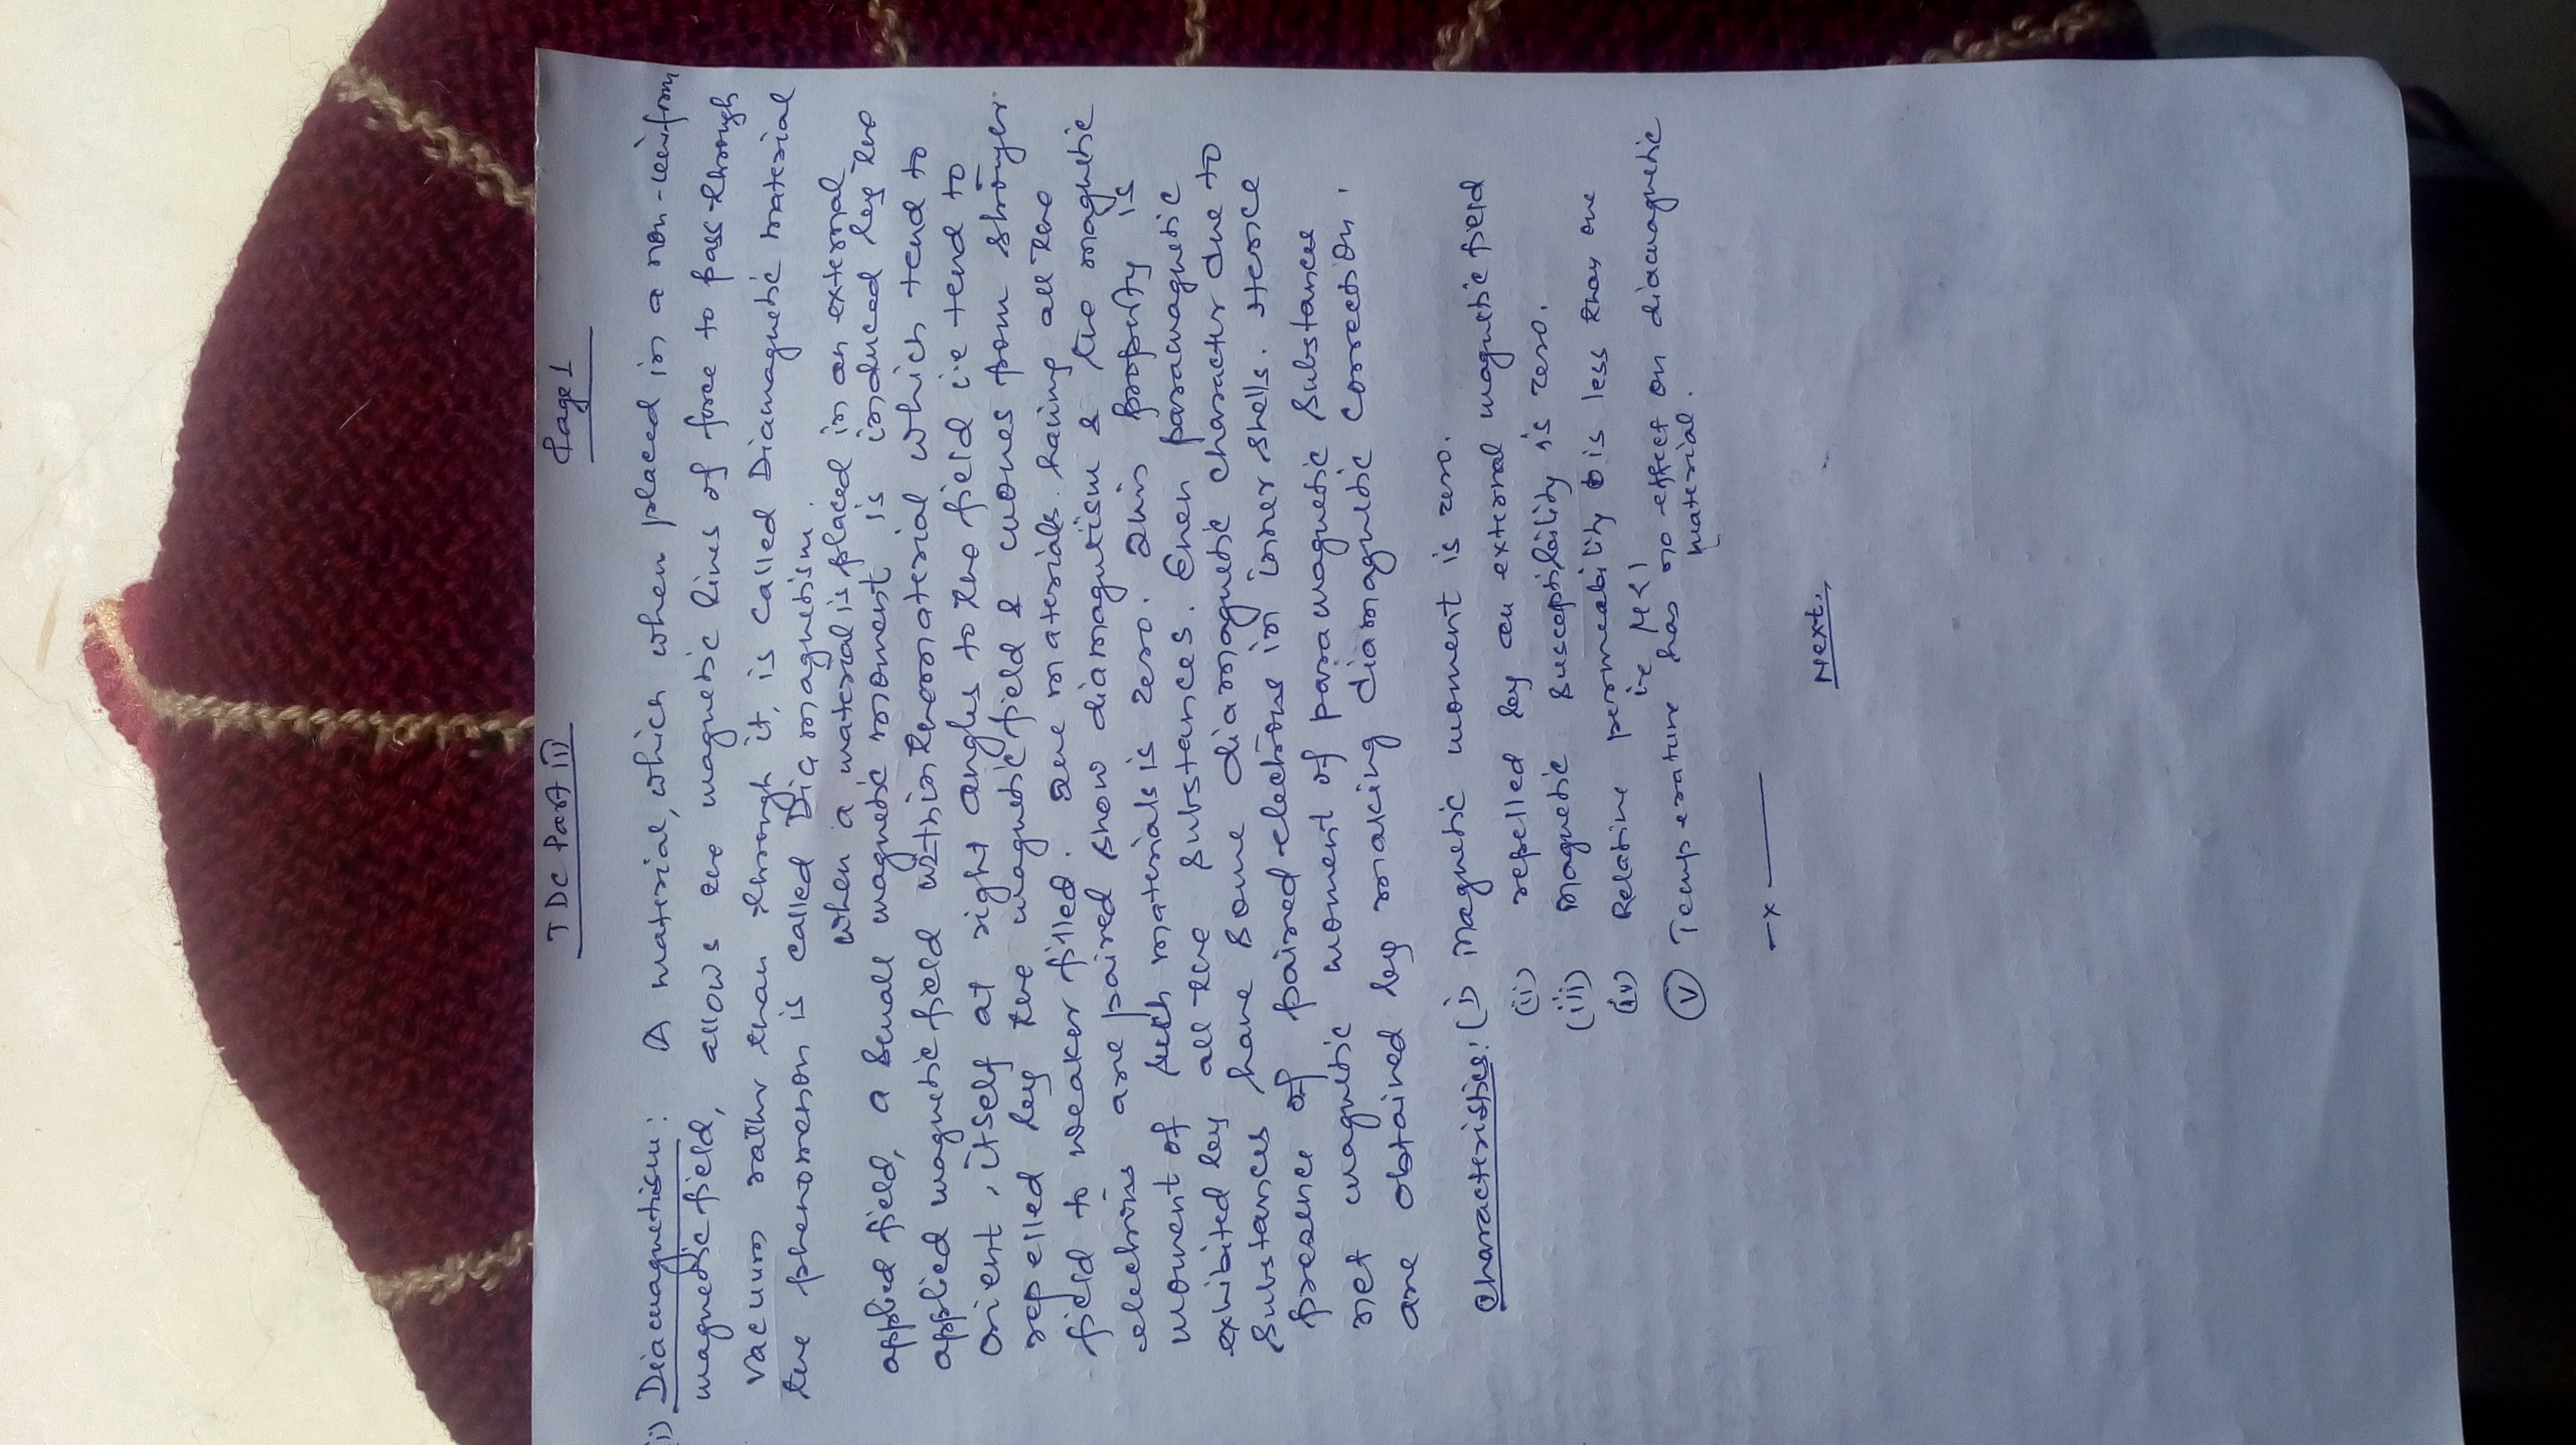 TDC Part III Page 1
(i) Diamagnetism: A material, which when placed in a non-uniform
magnetic field, allows the magnetic lines of force to pass through
vacuum rather than through it, is called Diamagnetic material
the phenomenon is called Diamagnetism.
When a material is placed in an external
applied field, a small magnetic moment is induced by the
applied magnetic field within the material which tend to
Orient, itself at right angles to the field i.e tend to
repelled by the magnetic field & moves from stronger
field to weaker filled. The materials having all the
electrons are paired show diamagnetism & the magnetic
moment of such materials is zero. This property is
exhibited by all the substances. Even paramagnetic
substances have some diamagnetic character due to
presence of paired electrons in inner shells. Hence
net magnetic moment of paramagnetic substances
are obtained by making diamagnetic correction.
Characteristics: (i) Magnetic moment is zero.
(ii) repelled by an external magnetic field
(iii) Magnetic susceptibility is zero.
(iv) Relative permeability is less than one
i.e μ<1
(v) Temperature has no effect on diamagnetic
material.
—x———
Next,